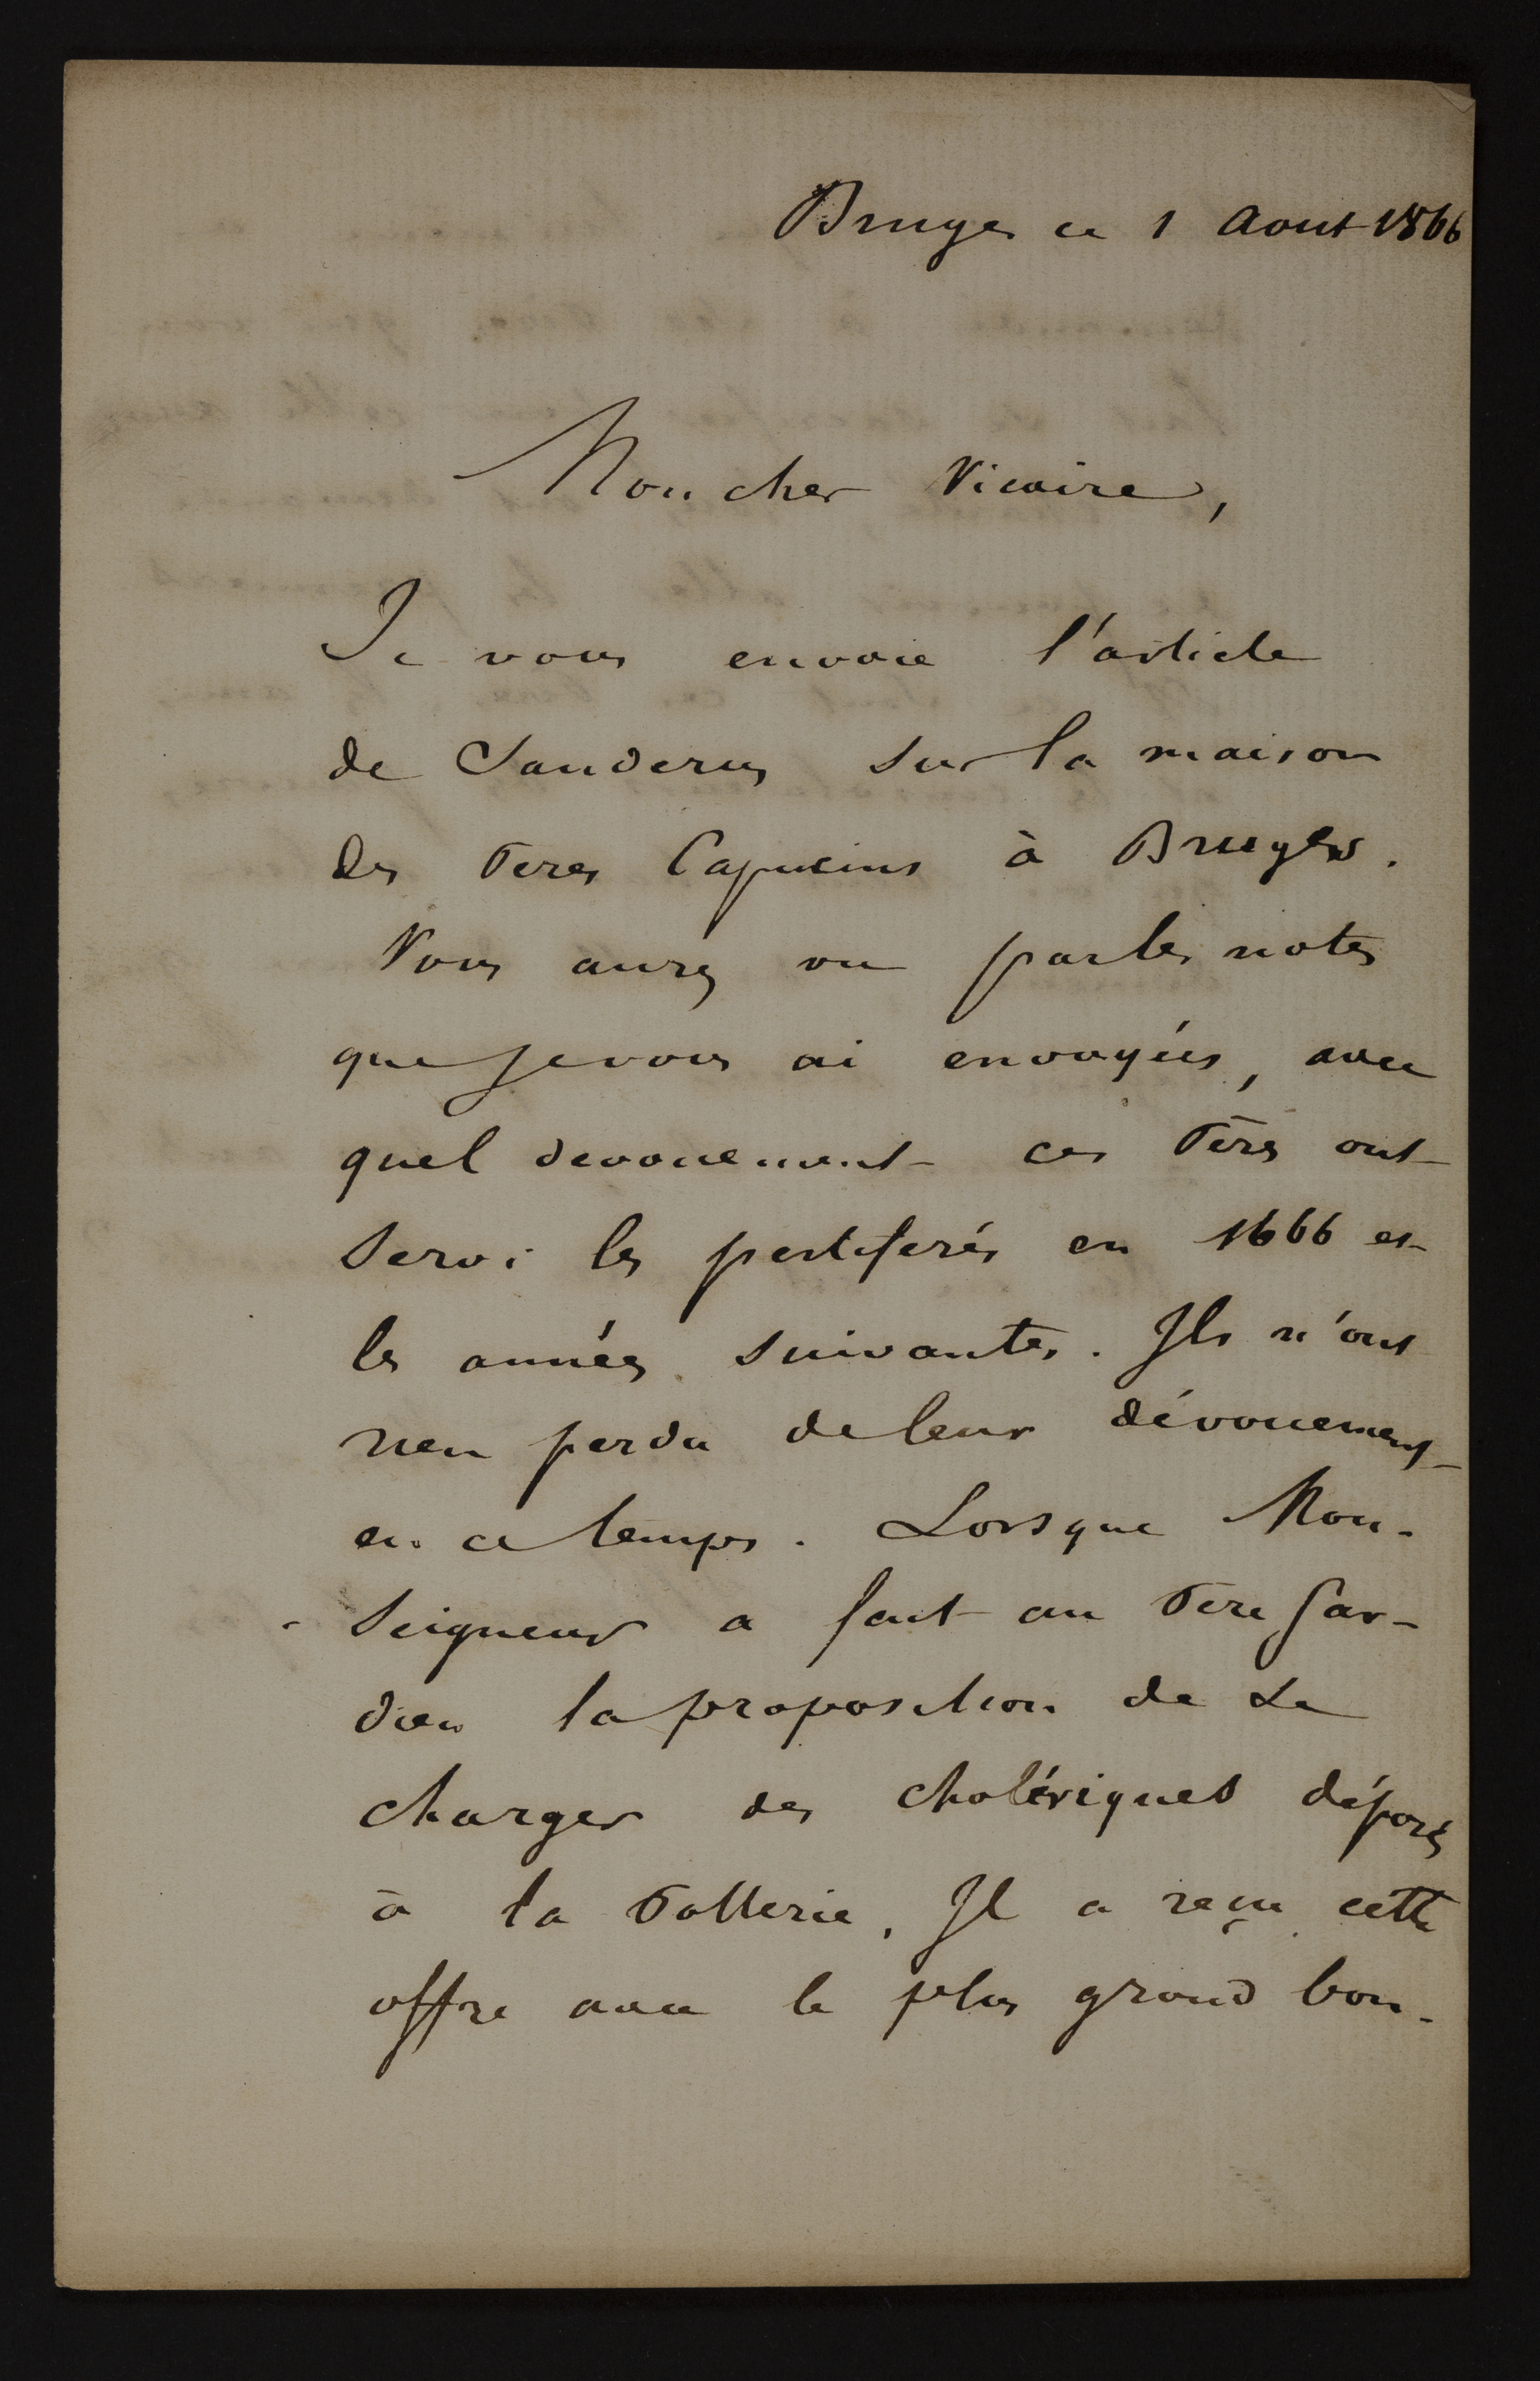 Bruges ce 1 Aout 1866
Mon cher Vicaire,
Je vous envoie l'article
de Sanderus sur la maison
des Peres Capucins à Bruges.
Vous aurez vu par les notes
que je vous ai envoyées, avec
quel devouement ces Pères ont
servi les pestiferés en 1666 et
les années suivantes. Ils n'ont
rien perdu de leur dévouement
en ce temps. Lorsque Mon-
seigneur a fait au Père Gar-
dien la proposition de se
charger des cholériques déposés
à la Potterie, Il a reçu cette
offre avec le plus grand bon-